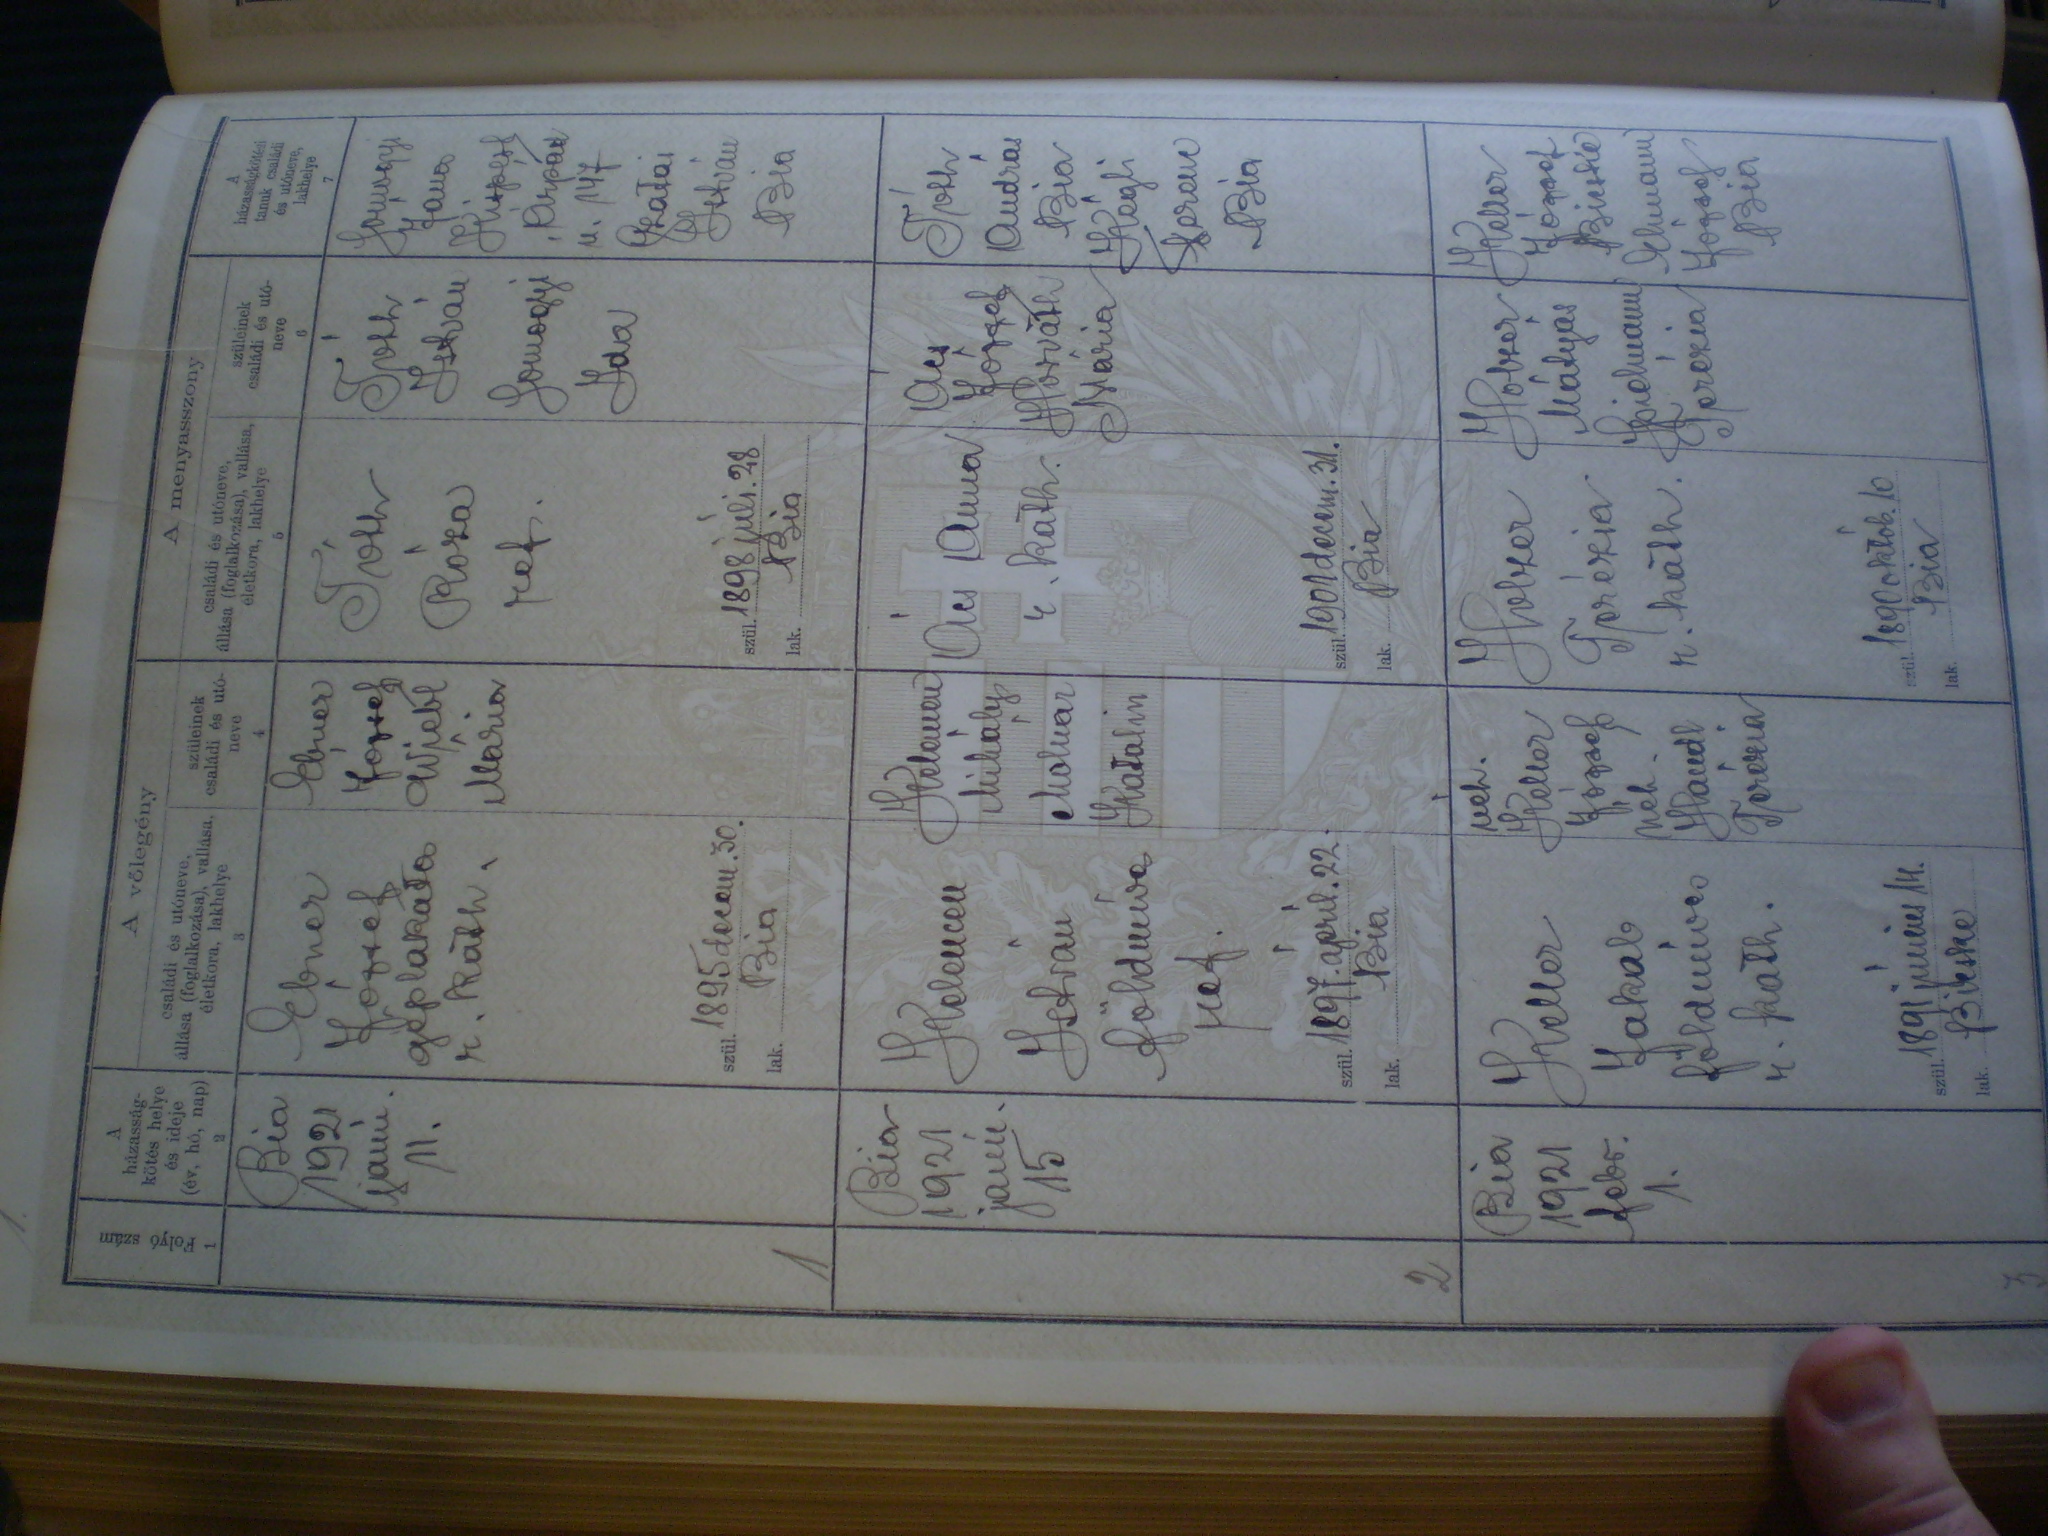 1.
A võlegény
A menyasszony
Folyó szám
1
A
házasság-
kötés helye
és ideje
(év, hó, nap)
2
családi és utóneve,
állása (foglalkozása), vallása,
életkora, lakhelye
3
szüleinek
családi és utó-
neve
4
családi és utóneve,
állása (foglalkozása), vallása,
életkora, lakhelye
5
szüleinek
családi és utó-
neve
6
A
házasságkötési
tanuk családi
és utóneve,
lakhelye
7
1
Bia
1921
janu.
11.
Ebner
József
géplakatos
r. kath.
szül. 1895 decem. 30.
Bia
lak.
Ebner
József
Mária
Tóth
Róza
ref.
szül. 1898 juli. 28
Bia
lak.
Tóth
István
Somogyi
Ida
Somogyi
János
Árpád
u. 147
István
Bia
2
Bia
1921
janu.
15
Kelemen
István
földmíves
ref.
szül. 1897. april. 22.
Bia
lak.
Kelemen
Mihály
Molnár
Katalin
Ács Anna
r. kath.
szül. 1901 decem. 31.
Bia
lak.
Ács
József
Horváth
Mária
Tóth
András
Bia
Hágli
Ferenc
Bia
3
Bia
1921
febr.
1.
Keller
Jakab
földmíves
r. kath.
szül. 1891 június 14.
Bicske
lak.
neh.
Keller
József
neh.
Handl
Terézia
Holzer
Terézia
r. kath.
szül. 1890 októb. 10
Bia
lak.
Holzer
Mátyás
Terézia
Keller
József
Bicske
József
Bia